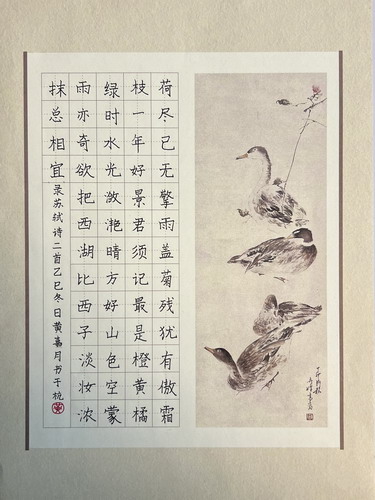 荷尽已无擎雨盖菊残犹有傲霜
枝一年好景君须记最是橙黄橘
绿时水光潋滟晴方好山色空蒙
雨亦奇欲把西湖比西子淡妆浓
抹总相宜录苏轼诗二首乙巳冬日黄嘉月书于杭